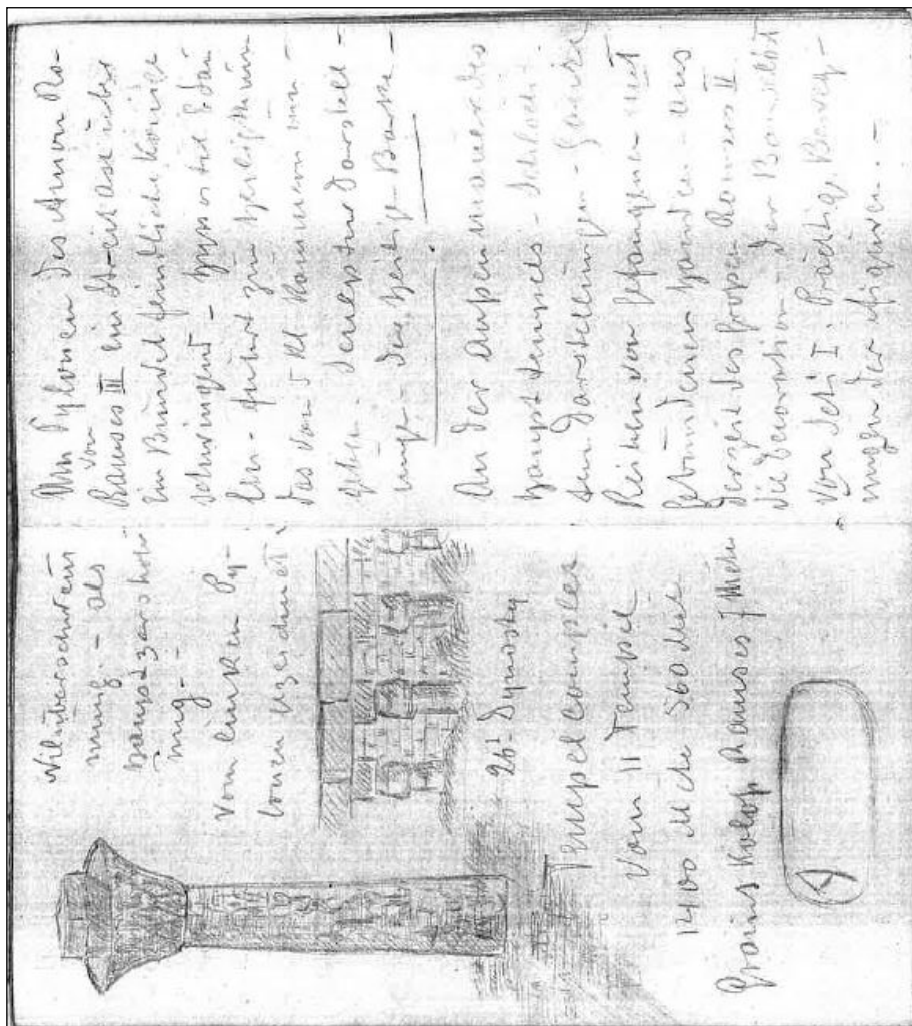 Nilüberschwem
mung. – als
Hauptzerstör
ung –
Vom linken Py-
lonen bezeichnet
26t Dynastie
Tempel Complex
Vom 11 Tempel
1400 Mete 560 Mete
Granit Koloss Ramses 7 Mete
Am Pylonen des Amon Ra-
von
Ramses III im Streit
Ein Bündel feindliche Könige
schwingend – Hypostil &
führt zum Heiligthum
das von 5 kl Kammern um-
geben. Sculptur Darstell-
unge der heilige Barke –
An der Außenmauer des
Haupttempels – Schlacht-
en Darstellungen – Ganze
Reihen von Gefangenen mit
gebundenen Händen – aus
der Zeit des großen Ramses II.
die Decoration der
Von Seti I Prächtige Beweg-
ungen der Figuren. –